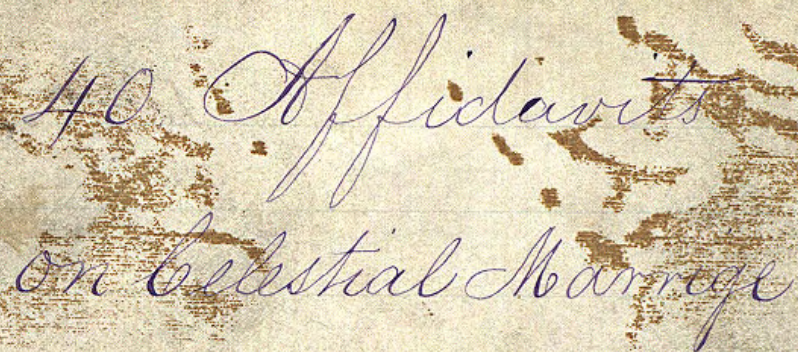 40 Affidavits
on Celestial Marrige